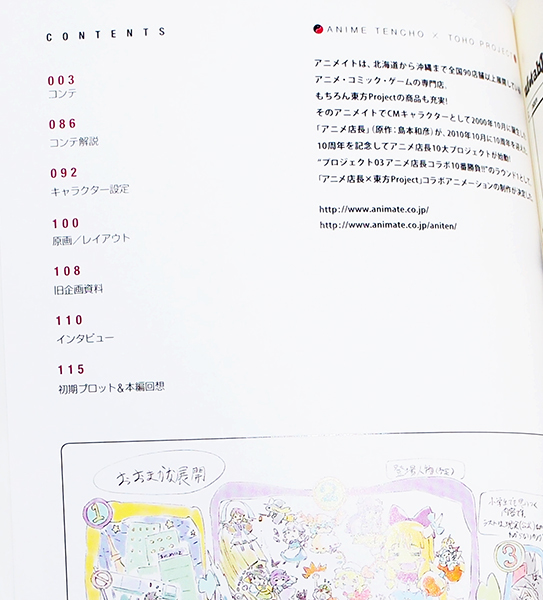 CONTENTS
003
コンテ
086
コンテ解説
092
キャラクター設定
100
原画／レイアウト
108
旧企画資料
110
インタビュー
115
初期プロット＆本編回想
ANIME TENCHO × TOHO PROJECT
アニメイトは、北海道から沖縄まで全国90店舗以上展開している
アニメ・コミック・ゲームの専門店。
もちろん東方Projectの商品も充実!
そのアニメイトでCMキャラクターとして2000年10月に誕生した
「アニメ店長」(原作：島本和彦)が、2010年10月に10周年を迎え、
10周年を記念してアニメ店長10大プロジェクトが始動!
"プロジェクト03アニメ店長コラボ10番勝負!!"のラウンド1として、
「アニメ店長×東方Project」コラボアニメーションの制作が決定した。
http://www.animate.co.jp/
http://www.animate.co.jp/aniten/
おおまかな展開
登場人物
1
3